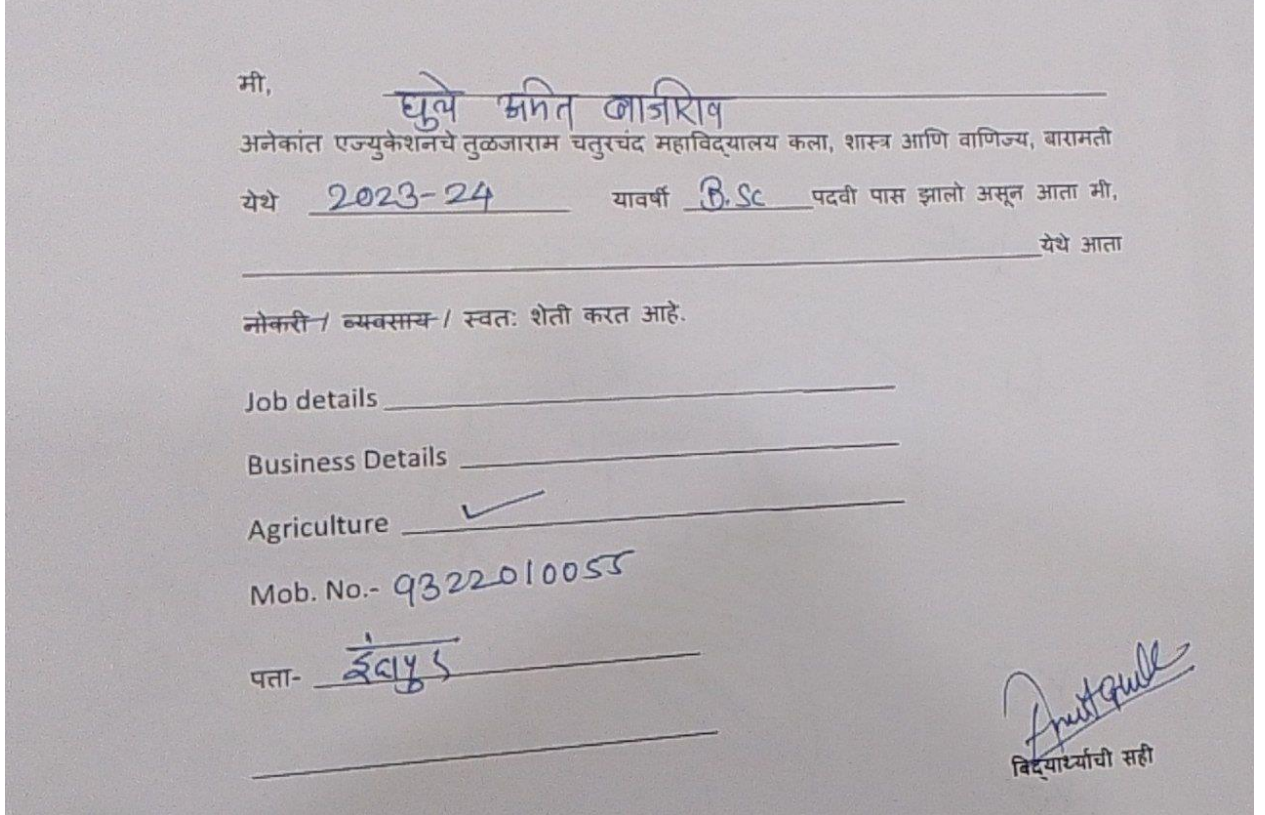 मी, घुले अमित बाजीराव
अनेकांत एज्युकेशनचे तुळजाराम चतुरचंद महाविद्यालय कला, शास्त्र आणि वाणिज्य, बारामती
येथे 2023-24 यावर्षी B.Sc पदवी पास झालो असून आता मी,
येथे आता
नोकरी / व्यवसाय / स्वतः शेती करत आहे.
Job details
Business Details
Agriculture ✓
Mob. No.- 9322010055
पता- इंदापुर
विद्यार्थ्याची सही